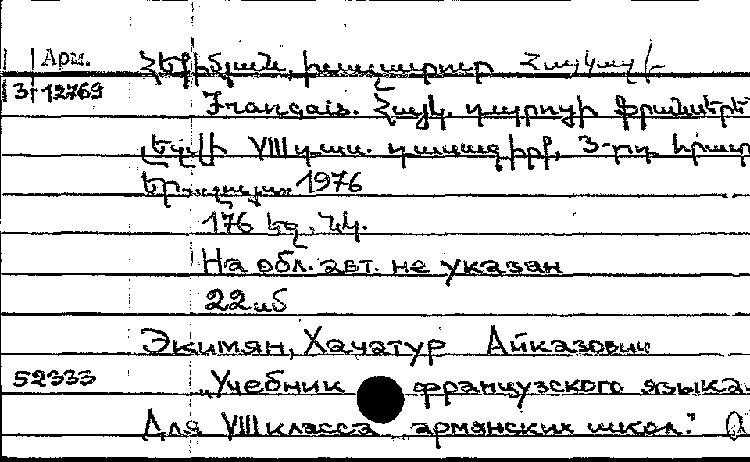 Арм. Հեքիմյան, Խաչատուր Հայկազի
3-12769 Français. Հայկ. դպրոցի ֆրանսերե
լեզվի VIII դաս. դասագիրք, 3-րդ հրատ
1976
176 էջ. նկ.
На обл. авт. не указан
22
Экимян, Хачатур Айказович
52333 „Учебник французского языка.
Для VIII класса армянских школ."